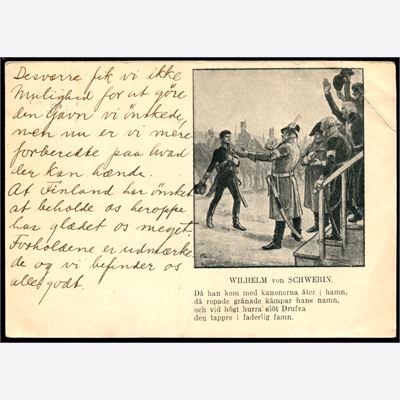 Desværre fik vi ikke
Mulighed for at göre
den Gavn vi önskede,
men nu er vi mere
forberedte paa hvad
der kan hænde.
At Finland har önsket
at beholde os heroppe
har glædet os meget.
Forholdene er udmærke
de og vi befinder os
alle godt.
WILHELM von SCHWERIN.
Då han kom med kanonerna åter i hamn,
då ropade grånade kämpar hans namn,
och vid högt hurra slöt Drufva
den tappre i faderlig famn.